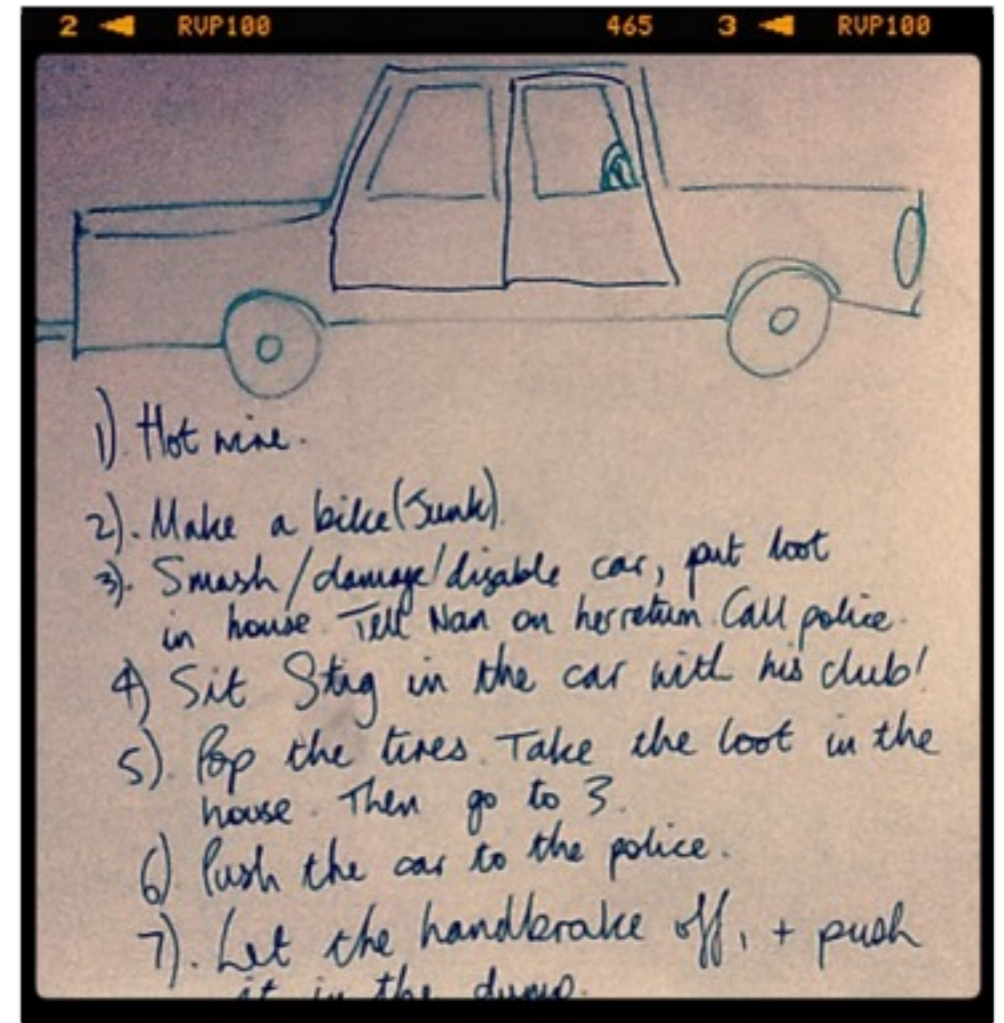 2 ◀ RVP100 465 3 ◀ RVP100
1). Hot wire.
2). Make a bike (Junk).
3). Smash/damage/disable car, put loot
in house. Tell Nan on her return. Call police.
4) Sit Stig in the car with his club!
5). Pop the tires. Take the loot in the
house. Then go to 3.
6) Push the car to the police.
7). Let the handbrake off, + push
it in the dump.